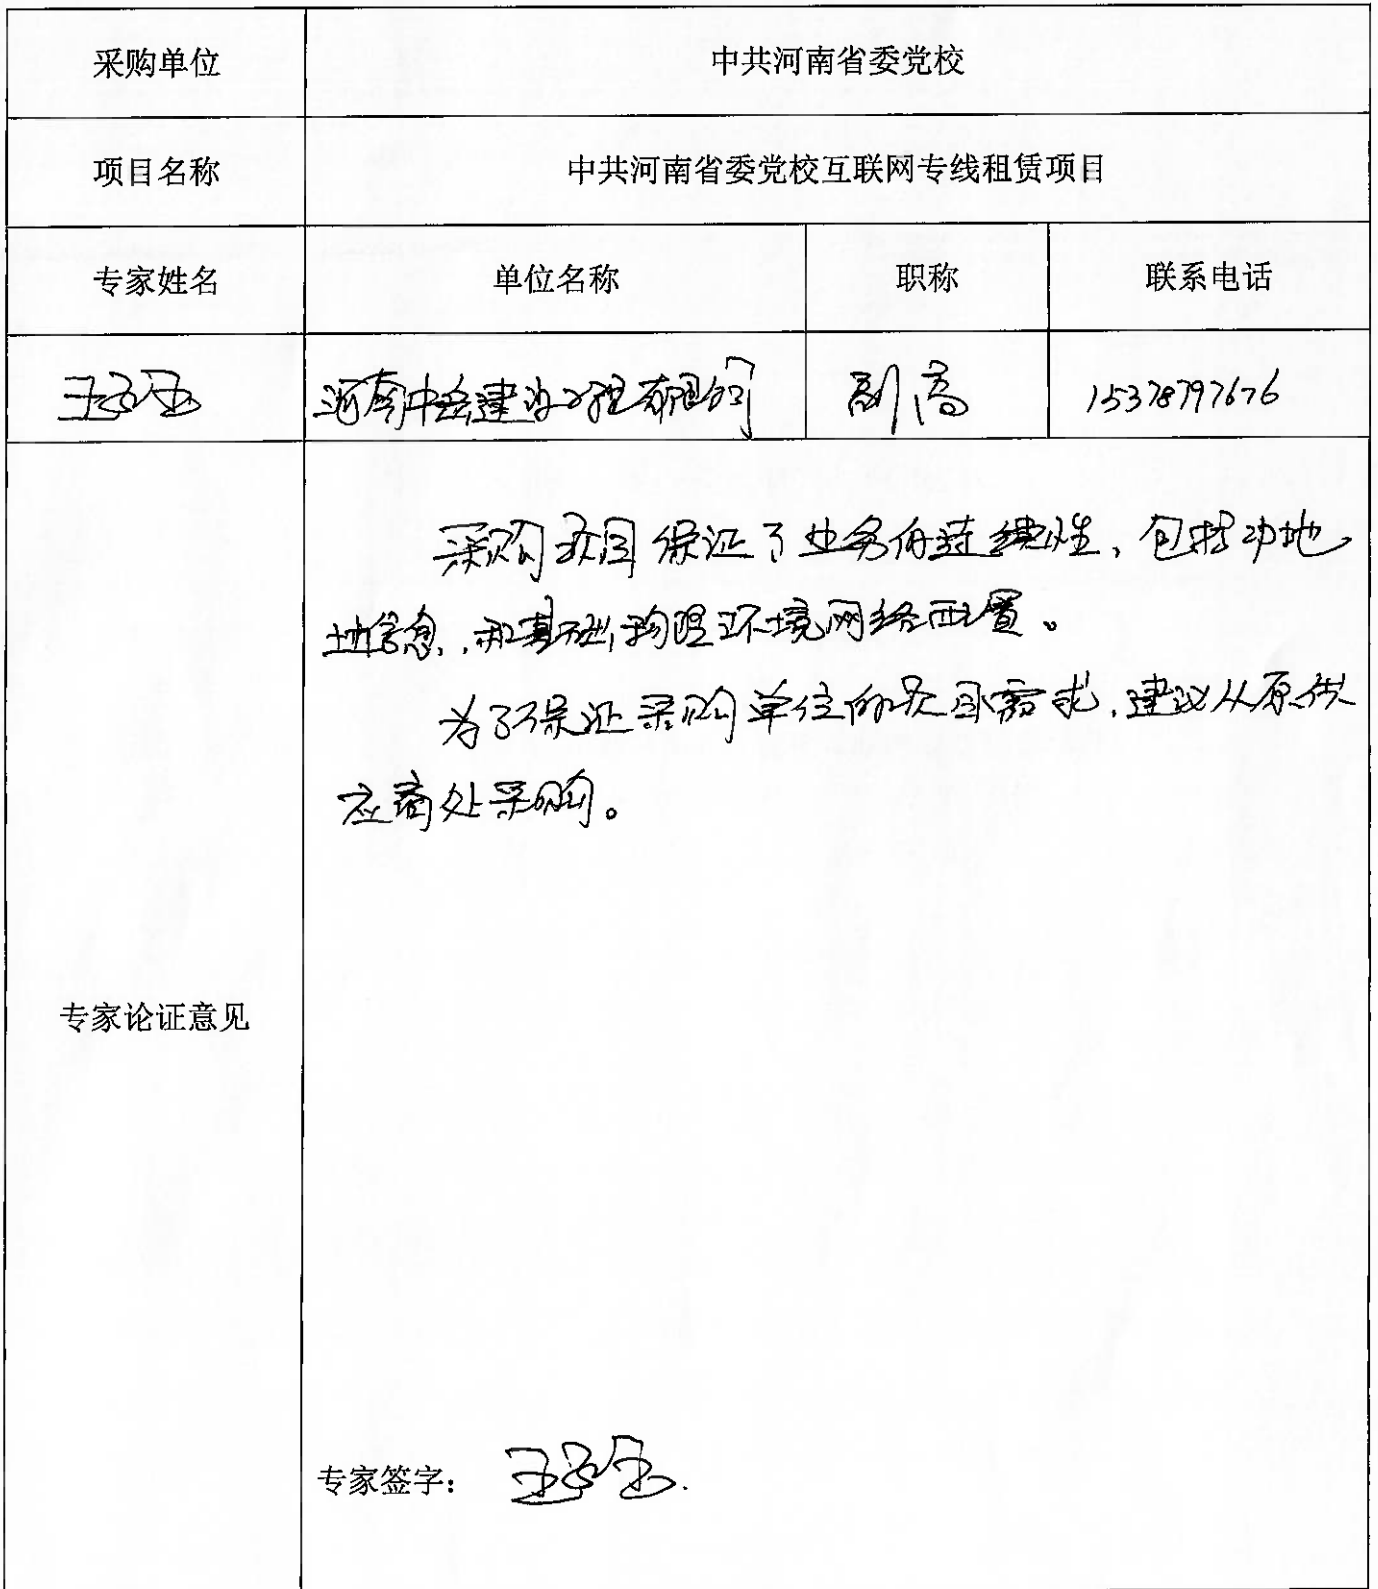 采购单位 中共河南省委党校
项目名称 中共河南省委党校互联网专线租赁项目
专家姓名 单位名称 职称 联系电话
王 河南中岳建设工程有限公司 副高 15378797676
采购项目保证了业务的连续性，包括ip地
址信息，和基础物理环境网络配置。
为了保证采购单位的项目需求，建议从原供
应商处采购。
专家论证意见
专家签字： 王